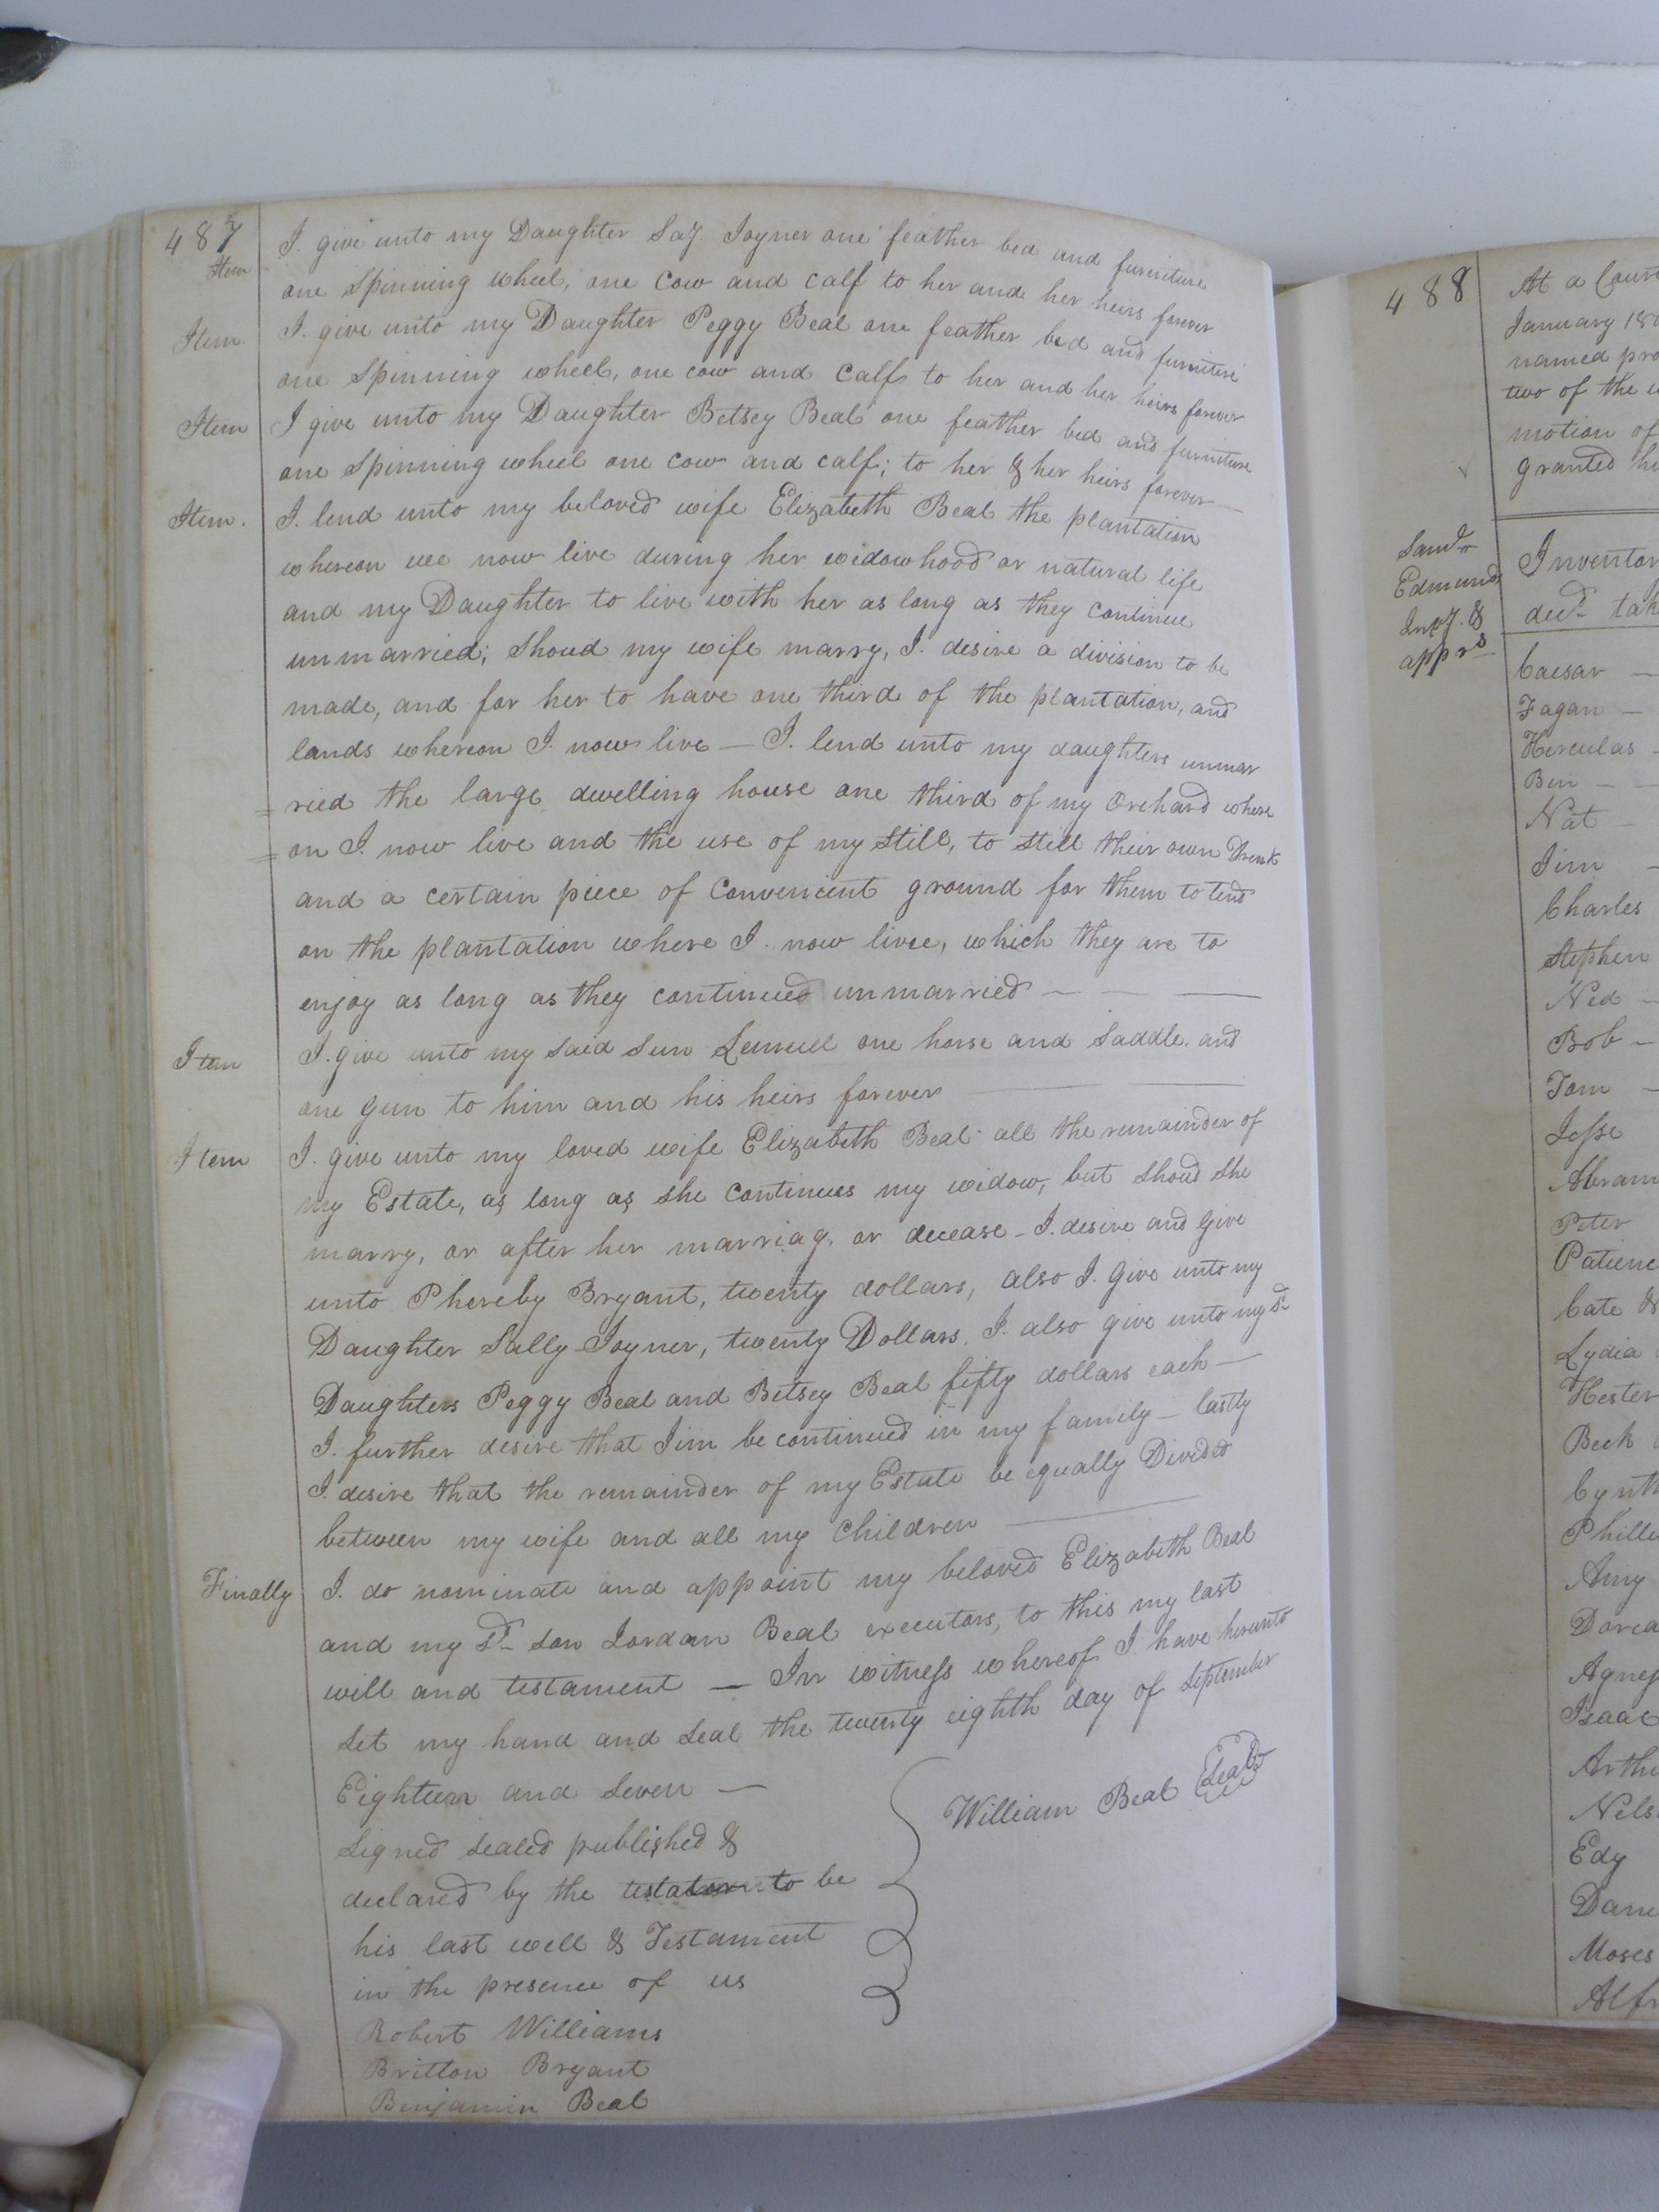 487
Item I. give unto my Daughter Say. Joyner one feather bed and furniture
one Spinning wheel, one Cow and Calf to her and her heirs forever
Item. I. give unto my Daughter Peggy Beal one feather bed and furniture
one Spinning wheel, one cow and Calf to her and her heirs forever
Item I give unto my Daughter Betsey Beal one feather bed and furniture
one Spinning wheel one cow and calf; to her & her heirs forever —
Item. I. lend unto my beloved wife Elizabeth Beal the plantation
whereon we now live during her widowhood or natural life
and my Daughter to live with her as long as they continue
unmarried; Shoud my wife marry, I. desire a division to be
made, and for her to have one third of the plantation, and
lands whereon I. now live — I. lend unto my daughters unmar
= ried the large dwelling house one third of my Orchard where
= on I. now live and the use of my Still, to Still their own Drink
and a certain piece of Convenient ground for them to tend
on the plantation where I. now live, which they are to
enjoy as long as they continued unmarried — — —
Item I. give unto my Said Sun Lemuel one horse and Saddle. and
one gun to him and his heirs forever — —
Item I. give unto my loved wife Elizabeth Beal all the remainder of
my Estate, as long as she Continues my widow, but Shoud She
marry, or after her marriag. or decease – I. desire and give
unto Phereby Bryant, twenty dollars, also I. Give unto my
Daughter Sally Joyner, twenty Dollars. I. also give unto my sd
Daughters Peggy Beal and Betsey Beal fifty dollars each —
I. further desire that Jim be continued in my family – lastly
I. desire that the remainder of my Estate be equally Divided
between my wife and all my Children —
Finally I. do nominate and appoint my beloved Elizabeth Beal
and my sd son Jordan Beal executors, to this my last
will and testament — In witness whereof I. have hereunto
Set my hand and Seal the twenty eighth day of September
Eighteen and Seven —
William Beal Seal
Signed Sealed published &
declared by the testator to be
his last well & Testament
in the presence of us
Robert Williams
Britton Bryant
Benjamin Beal
488
At a Cour
January 18
named pro
two of the
motion of
granted h
Edmunds
Invy. &
apprs
Inventor
decd tak
Caesar —
Fagan —
Herculas
Ben — —
Nat —
Jim —
Charles
Stephen
Ned —
Bob —
Tom —
Jesse
Abram
Peter
Patienc
Cate &
Lydia
Hester
Beck
Cynth
Phill
Amy
Dorca
Agnes
Isaac
Arthu
Nels
Edy
Dan
Moses
Alf